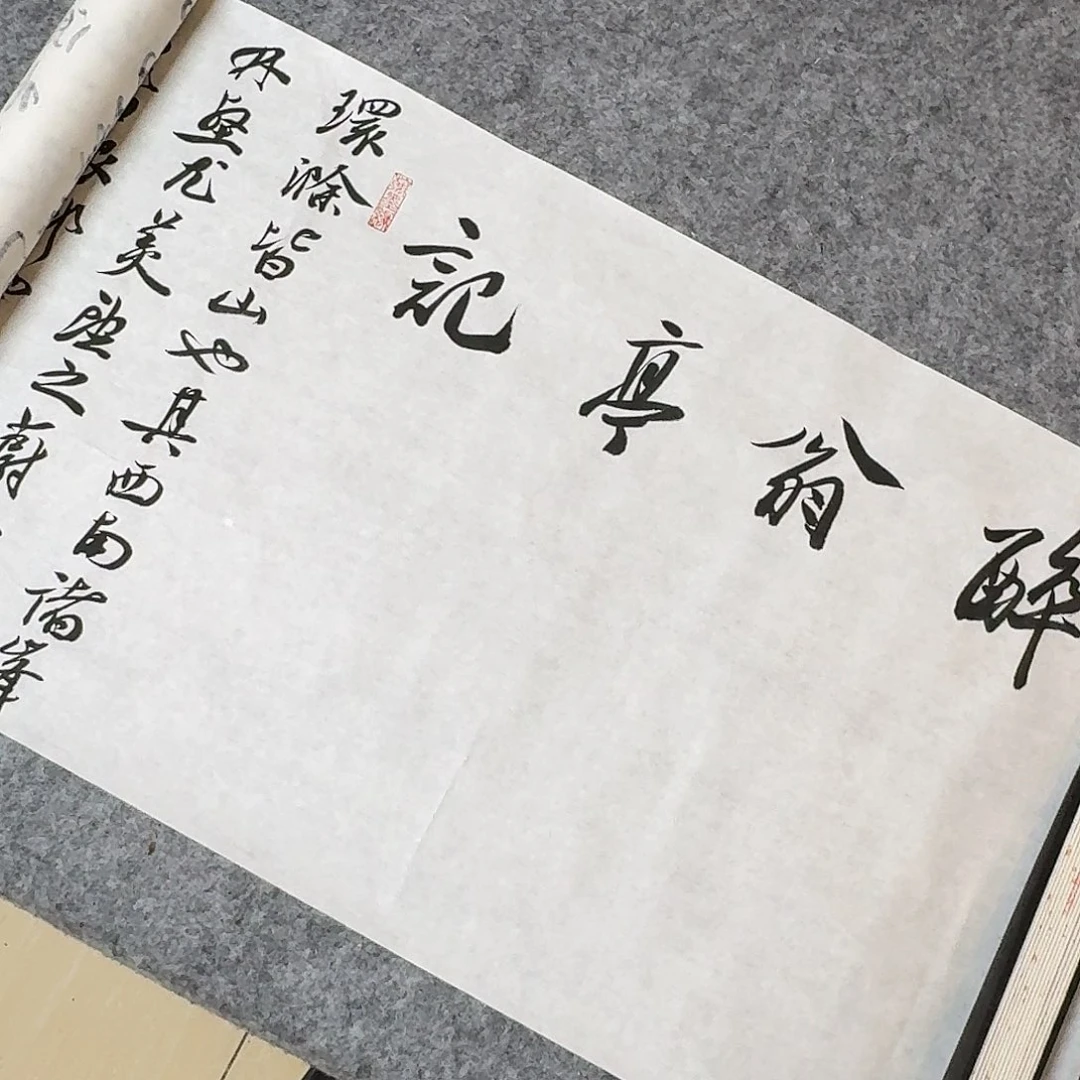 醉翁亭記
環滁皆山也其西南諸峯
林壑尤美望之蔚